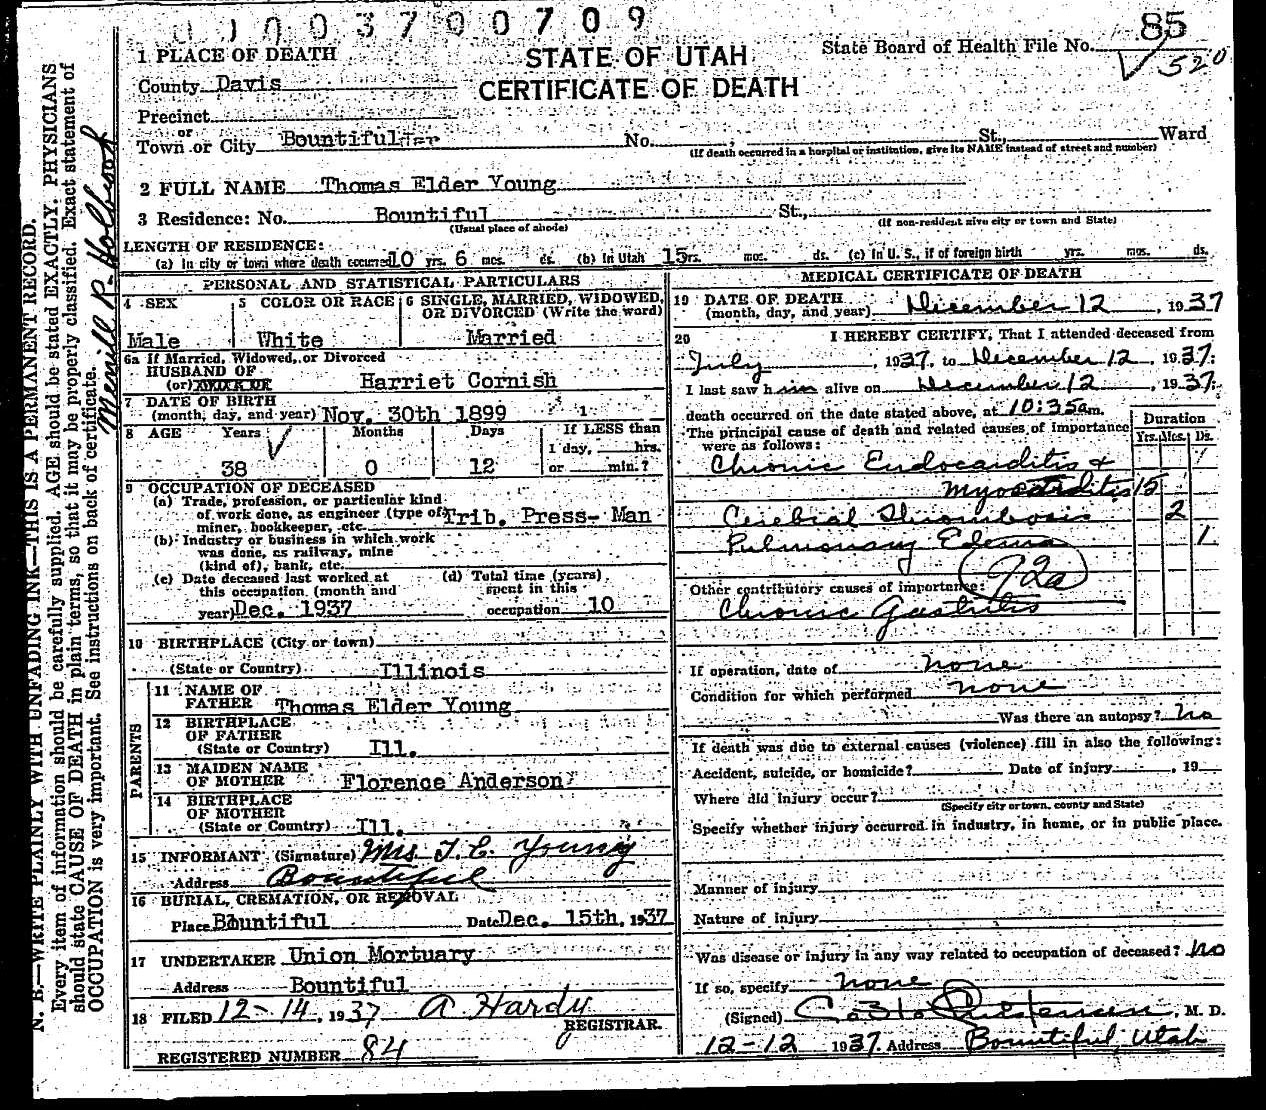 0 1 0 0 3 7 0 0 7 0 9
85
520
STATE OF UTAH
CERTIFICATE OF DEATH
State Board of Health File No.
1 PLACE OF DEATH
County Davis
Precinct
or
Town or City Bountiful No. St., Ward
(If death occurred in a hospital or institution, give its NAME instead of street and number)
2 FULL NAME Thomas Elder Young
3 Residence: No. Bountiful St.,
(Usual place of abode) (If non-resident give city or town and State)
LENGTH OF RESIDENCE:
(a) In city or town where death occurred 10 yrs. 6 mos. ds. (b) In Utah 15rs. mos. ds. (c) In U. S., if of foreign birth yrs. mos. ds.
PERSONAL AND STATISTICAL PARTICULARS
4 SEX 5 COLOR OR RACE 6 SINGLE, MARRIED, WIDOWED, OR DIVORCED (Write the word)
Male White Married
6a If Married, Widowed, or Divorced
HUSBAND OF
(or) WIFE OF Harriet Cornish
7 DATE OF BIRTH
(month, day, and year) Nov. 30th 1899
8 AGE Years Months Days If LESS than
1 day, hrs.
38 0 12 or min.?
9 OCCUPATION OF DECEASED
(a) Trade, profession, or particular kind
of work done, as engineer (type of Trib. Press- Man
miner, bookkeeper, etc.
(b) Industry or business in which work
was done, as railway, mine
(kind of), bank, etc.
(c) Date deceased last worked at (d) Total time (years)
this occupation (month and spent in this
year) Dec. 1937 occupation 10
10 BIRTHPLACE (City or town)
(State or Country) Illinois
PARENTS
11 NAME OF
FATHER Thomas Elder Young
12 BIRTHPLACE
OF FATHER
(State or Country) Ill.
13 MAIDEN NAME
OF MOTHER Florence Anderson
14 BIRTHPLACE
OF MOTHER
(State or Country) Ill.
15 INFORMANT (Signature) Mrs T. E. Young
Address Bountiful
16 BURIAL, CREMATION, OR REMOVAL
Place Bountiful Date Dec. 15th, 1937
17 UNDERTAKER Union Mortuary
Address Bountiful
18 FILED 12-14, 1937 A Hardy
REGISTRAR.
REGISTERED NUMBER 84
MEDICAL CERTIFICATE OF DEATH
19 DATE OF DEATH
(month, day, and year) December 12, 1937
20 I HEREBY CERTIFY, That I attended deceased from
July, 1937, to December 12, 1937:
I last saw h im alive on December 12, 1937:
death occurred on the date stated above, at 10:35 am.
The principal cause of death and related causes of importance
were as follows:
Duration
Yrs. Mos. Ds.
Chronic Endocarditis &
Myocarditis 15
Cerebral Thrombosis 2
Pulmonary Edema 1
92a
Other contributory causes of importance:
Chronic Gastritis
If operation, date of none
Condition for which performed none
Was there an autopsy? no
If death was due to external causes (violence) fill in also the following:
Accident, suicide, or homicide? Date of injury , 19
Where did injury occur?
(Specify city or town, county and State)
Specify whether injury occurred in industry, in home, or in public place.
Manner of injury
Nature of injury
Was disease or injury in any way related to occupation of deceased? no
If so, specify none
(Signed) , M. D.
12-12 1937 Address Bountiful, Utah
N. B.—WRITE PLAINLY WITH UNFADING INK—THIS IS A PERMANENT RECORD.
Every item of information should be carefully supplied. AGE should be stated EXACTLY. PHYSICIANS
should state CAUSE OF DEATH in plain terms, so that it may be properly classified. Exact statement of
OCCUPATION is very important. See instructions on back of certificate.
Merrill R. Holbrook